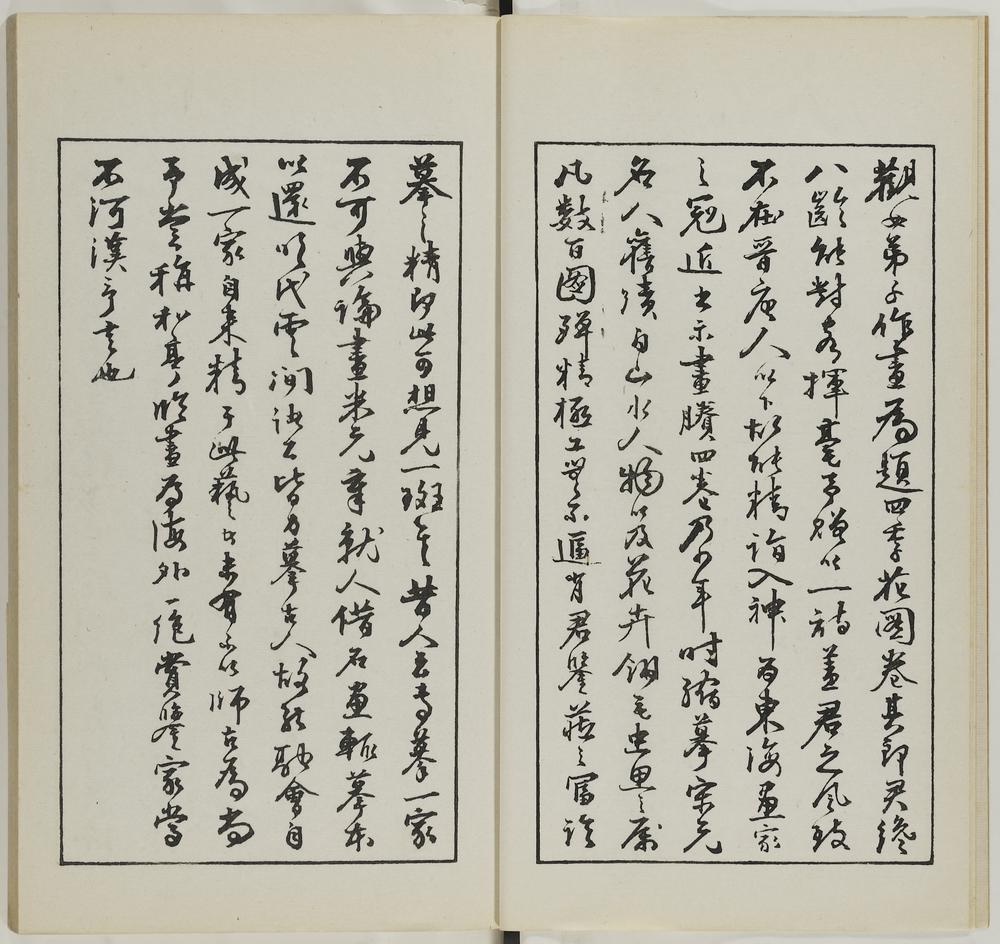 觀女弟子作畫爲題四季花圖卷其郎君纔
八齡能對客揮毫予贈以一詩蓋君之風致
不在晉唐人以下故能精詣入神為東海畫家
之冠近出示畫賸四卷乃少年時縮摹宋元
名人舊蹟自山水人物以及花卉翎毛虫魚之屬
凡數百圖殫精極工無不逼肖君鑒藏之富詣
摹之精即此可想見一斑矣昔人云專摹一家
不可與論畫米元章就人借名畫輒摹本
以還明代雲間諸公皆力摹古人故能融會自
成一家自來精于此藝者未有不以師古為尚
予嘗稱松亭臨畫為海外一絕賞鑒家當
不河漢予言也